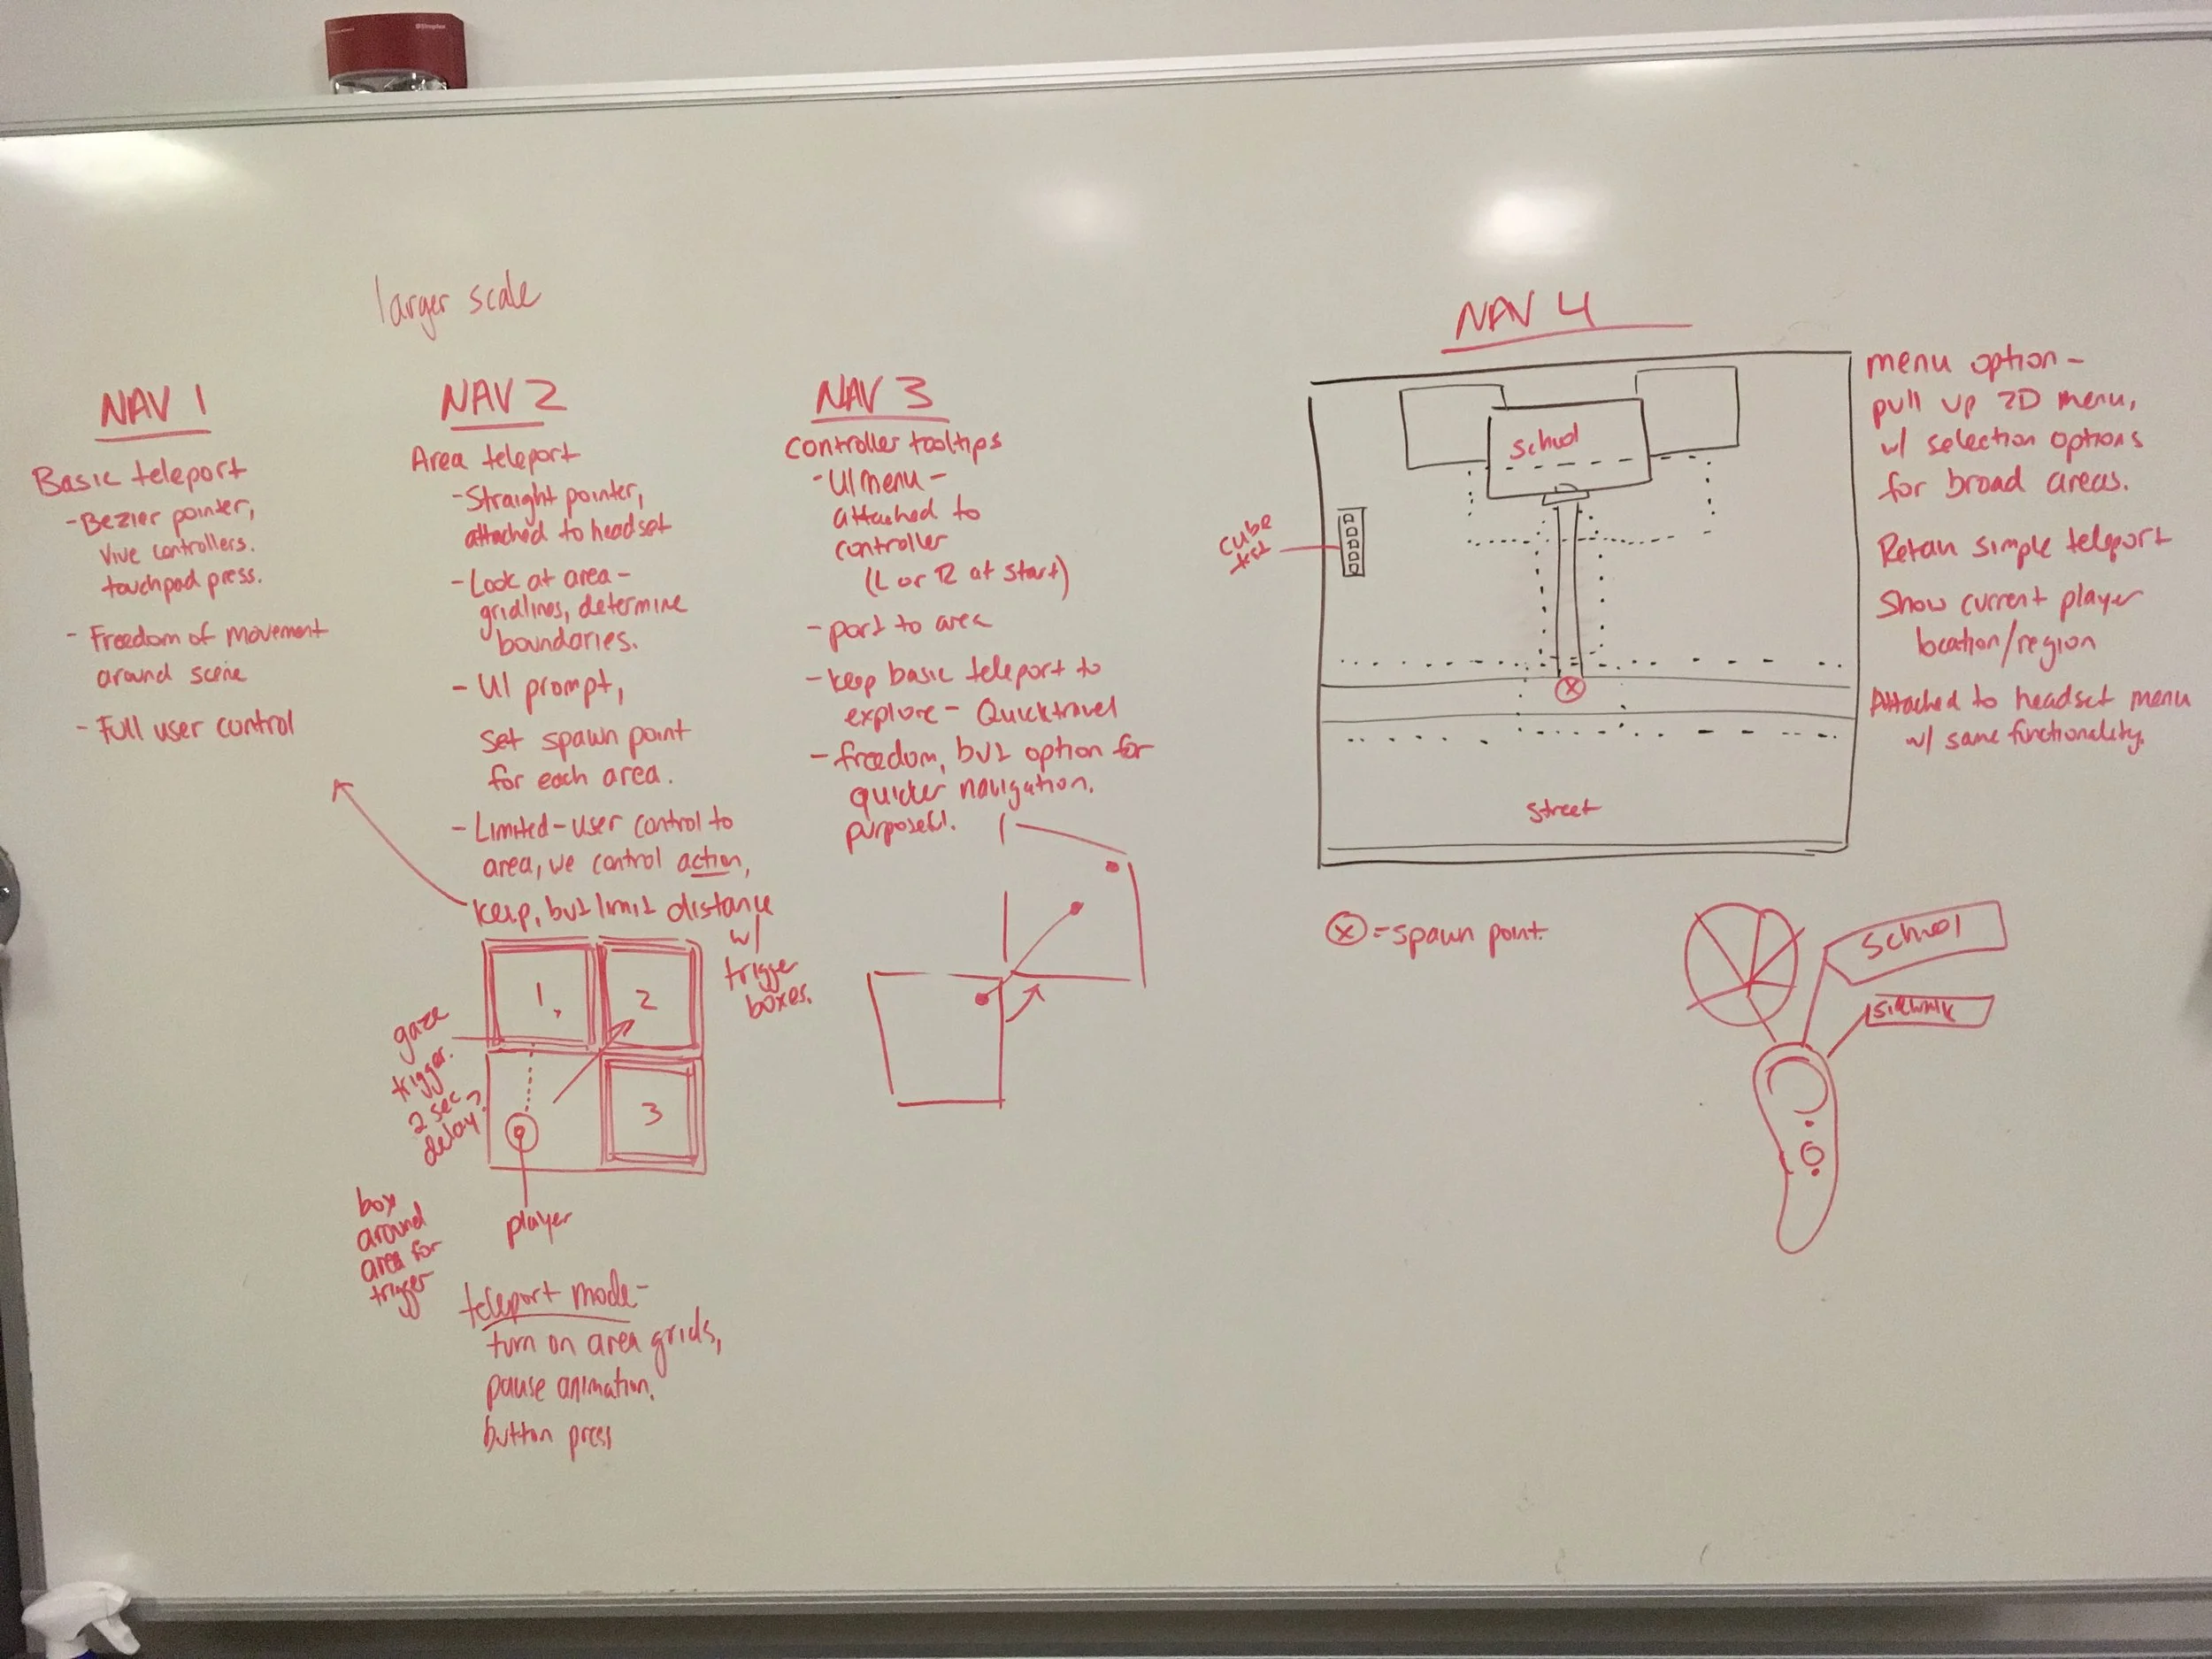 larger scale
NAV 1
Basic teleport
- Bezier pointer,
Vive controllers.
touchpad press.
- Freedom of movement
around scene
- Full user control
NAV 2
Area teleport
- Straight pointer,
attached to headset
- Look at area -
gridlines, determine
boundaries.
- UI prompt,
set spawn point
for each area.
- Limited - user control to
area, we control action,
keep, but limit distance
w/
trigger
boxes.
1,
2
3
gaze
trigger.
2 sec
delay?
player
box
around
area for
trigger
teleport mode -
turn on area grids,
pause animation,
button press
NAV 3
Controller tooltips
- UI menu -
attached to
controller
(L or R at start)
- port to area
- keep basic teleport to
explore - Quicktravel
- freedom, but option for
quicker navigation.
NAV 4
School
cube
Street
= spawn point.
menu option -
pull up 2D menu,
w/ selection options
for broad areas.
Retain simple teleport
Show current player
location/region
Attached to headset menu
w/ same functionality.
School
Sidewalk